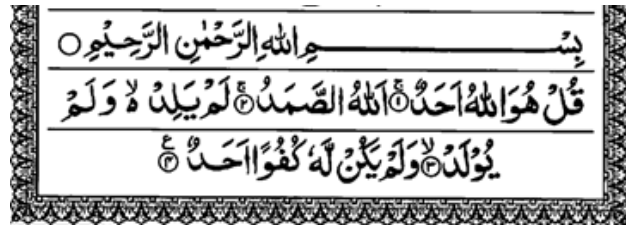 بِسْمِ اللهِ الرَّحْمٰنِ الرَّحِيْمِ ○
قُلْ هُوَ اللهُ اَحَدٌ ۚ﴿۱﴾ اَللهُ الصَّمَدُ ۚ﴿۲﴾ لَمْ يَلِدْ ۙ وَ لَمْ
يُوْلَدْ ۙ﴿۳﴾ وَلَمْ يَكُنْ لَّهٗ كُفُوًا اَحَدٌ ﴿۴﴾ ع